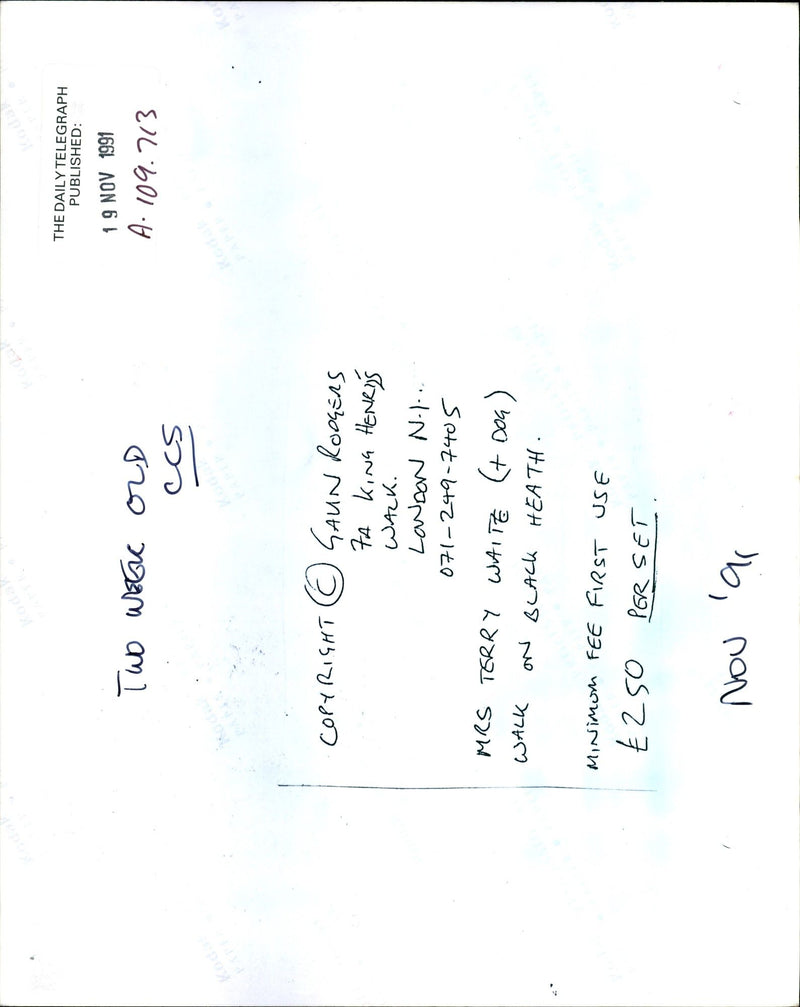 THE DAILY TELEGRAPH
PUBLISHED:
19 NOV 1991
A. 109. 713
TWO WEEK OLD
CCS
COPYRIGHT © GAVIN RODGERS
7A KING HENRYS
WALK.
LONDON N.1...
071-249-7405
MRS TERRY WAITE (+ DOG)
WALK ON BLACK HEATH.
MINIMUM FEE FIRST USE
£250 PER SET.
NOV '91
Kodak
PAPER